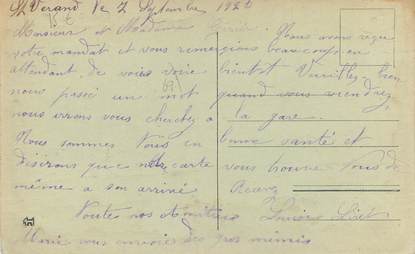 St Verand le 2 Septembre 192
Monsieur et Madame Nous avons reçu
votre mandat et vous remercions beaucoup en
attendant de vous voire bientot Veuillez bien
nous passé un mot quand vous viendrez
nous irrons vous cherchez a la gare.
Nous sommes tous en bonne santé et
désirons que notre carte vous trouve tous de
même a son arrivé Recevez
Toutes nos Amitiers
vous envoie des gros mimis